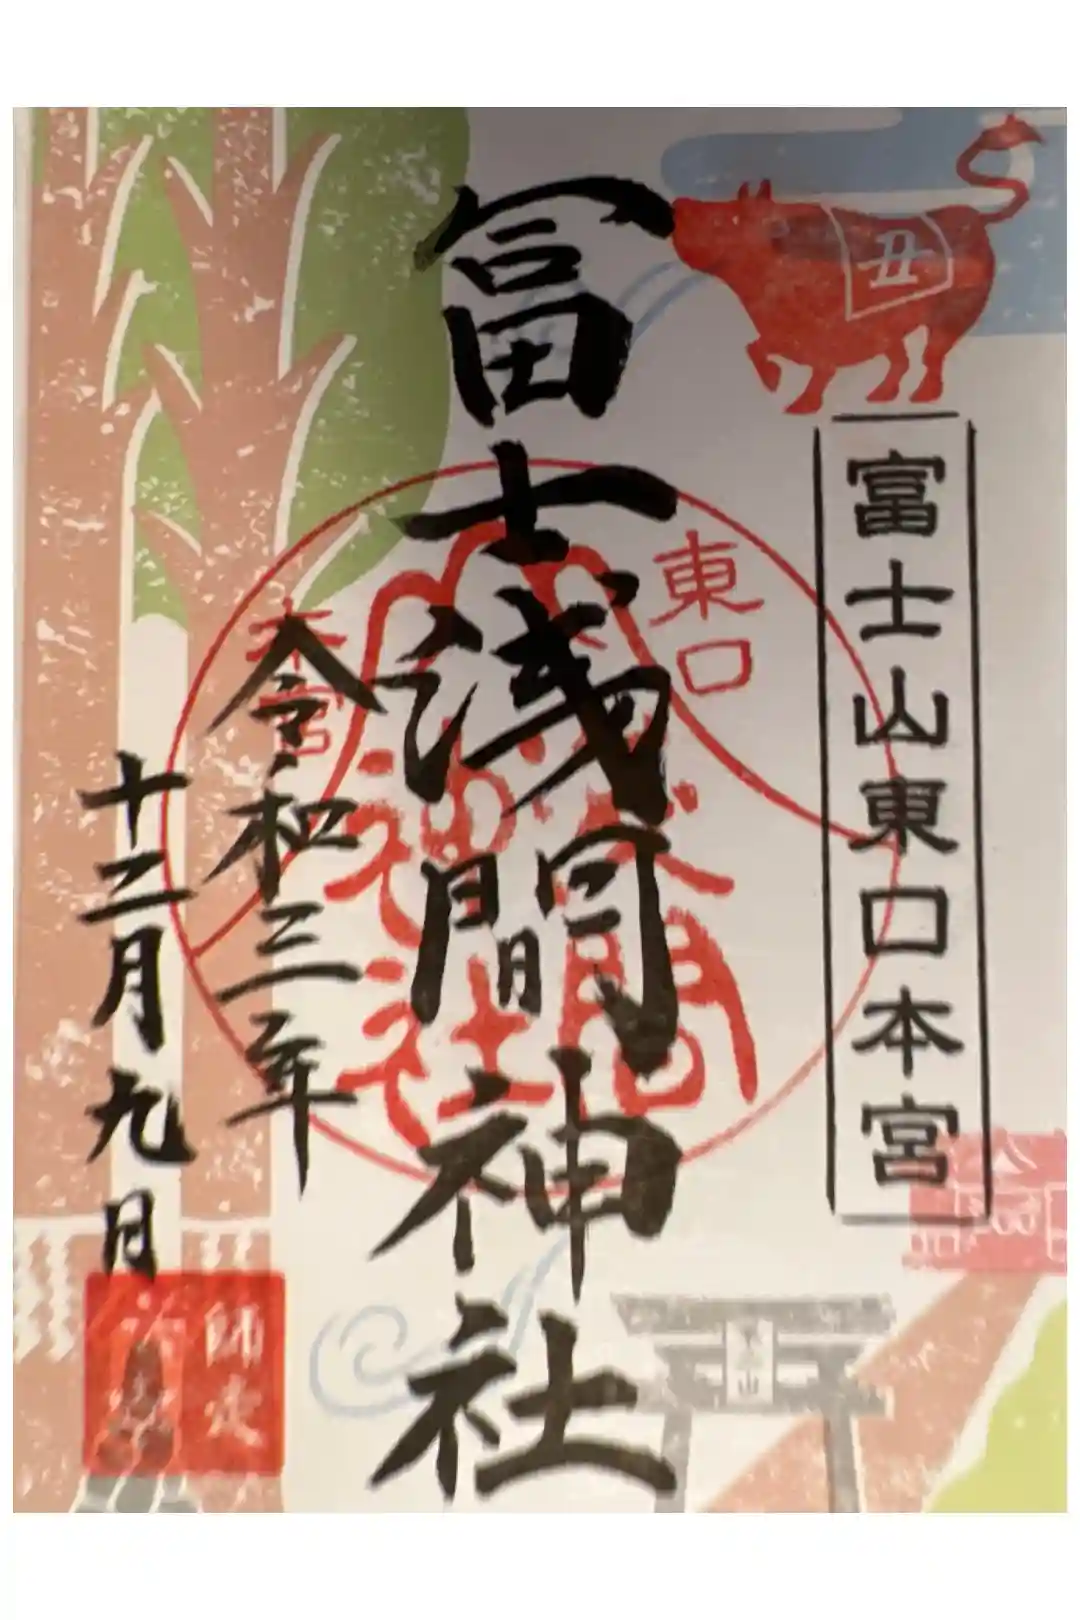 丑
富士山東口本宮
東口
本宮
冨士浅間神社
浅間
神社
令和三年
十二月九日